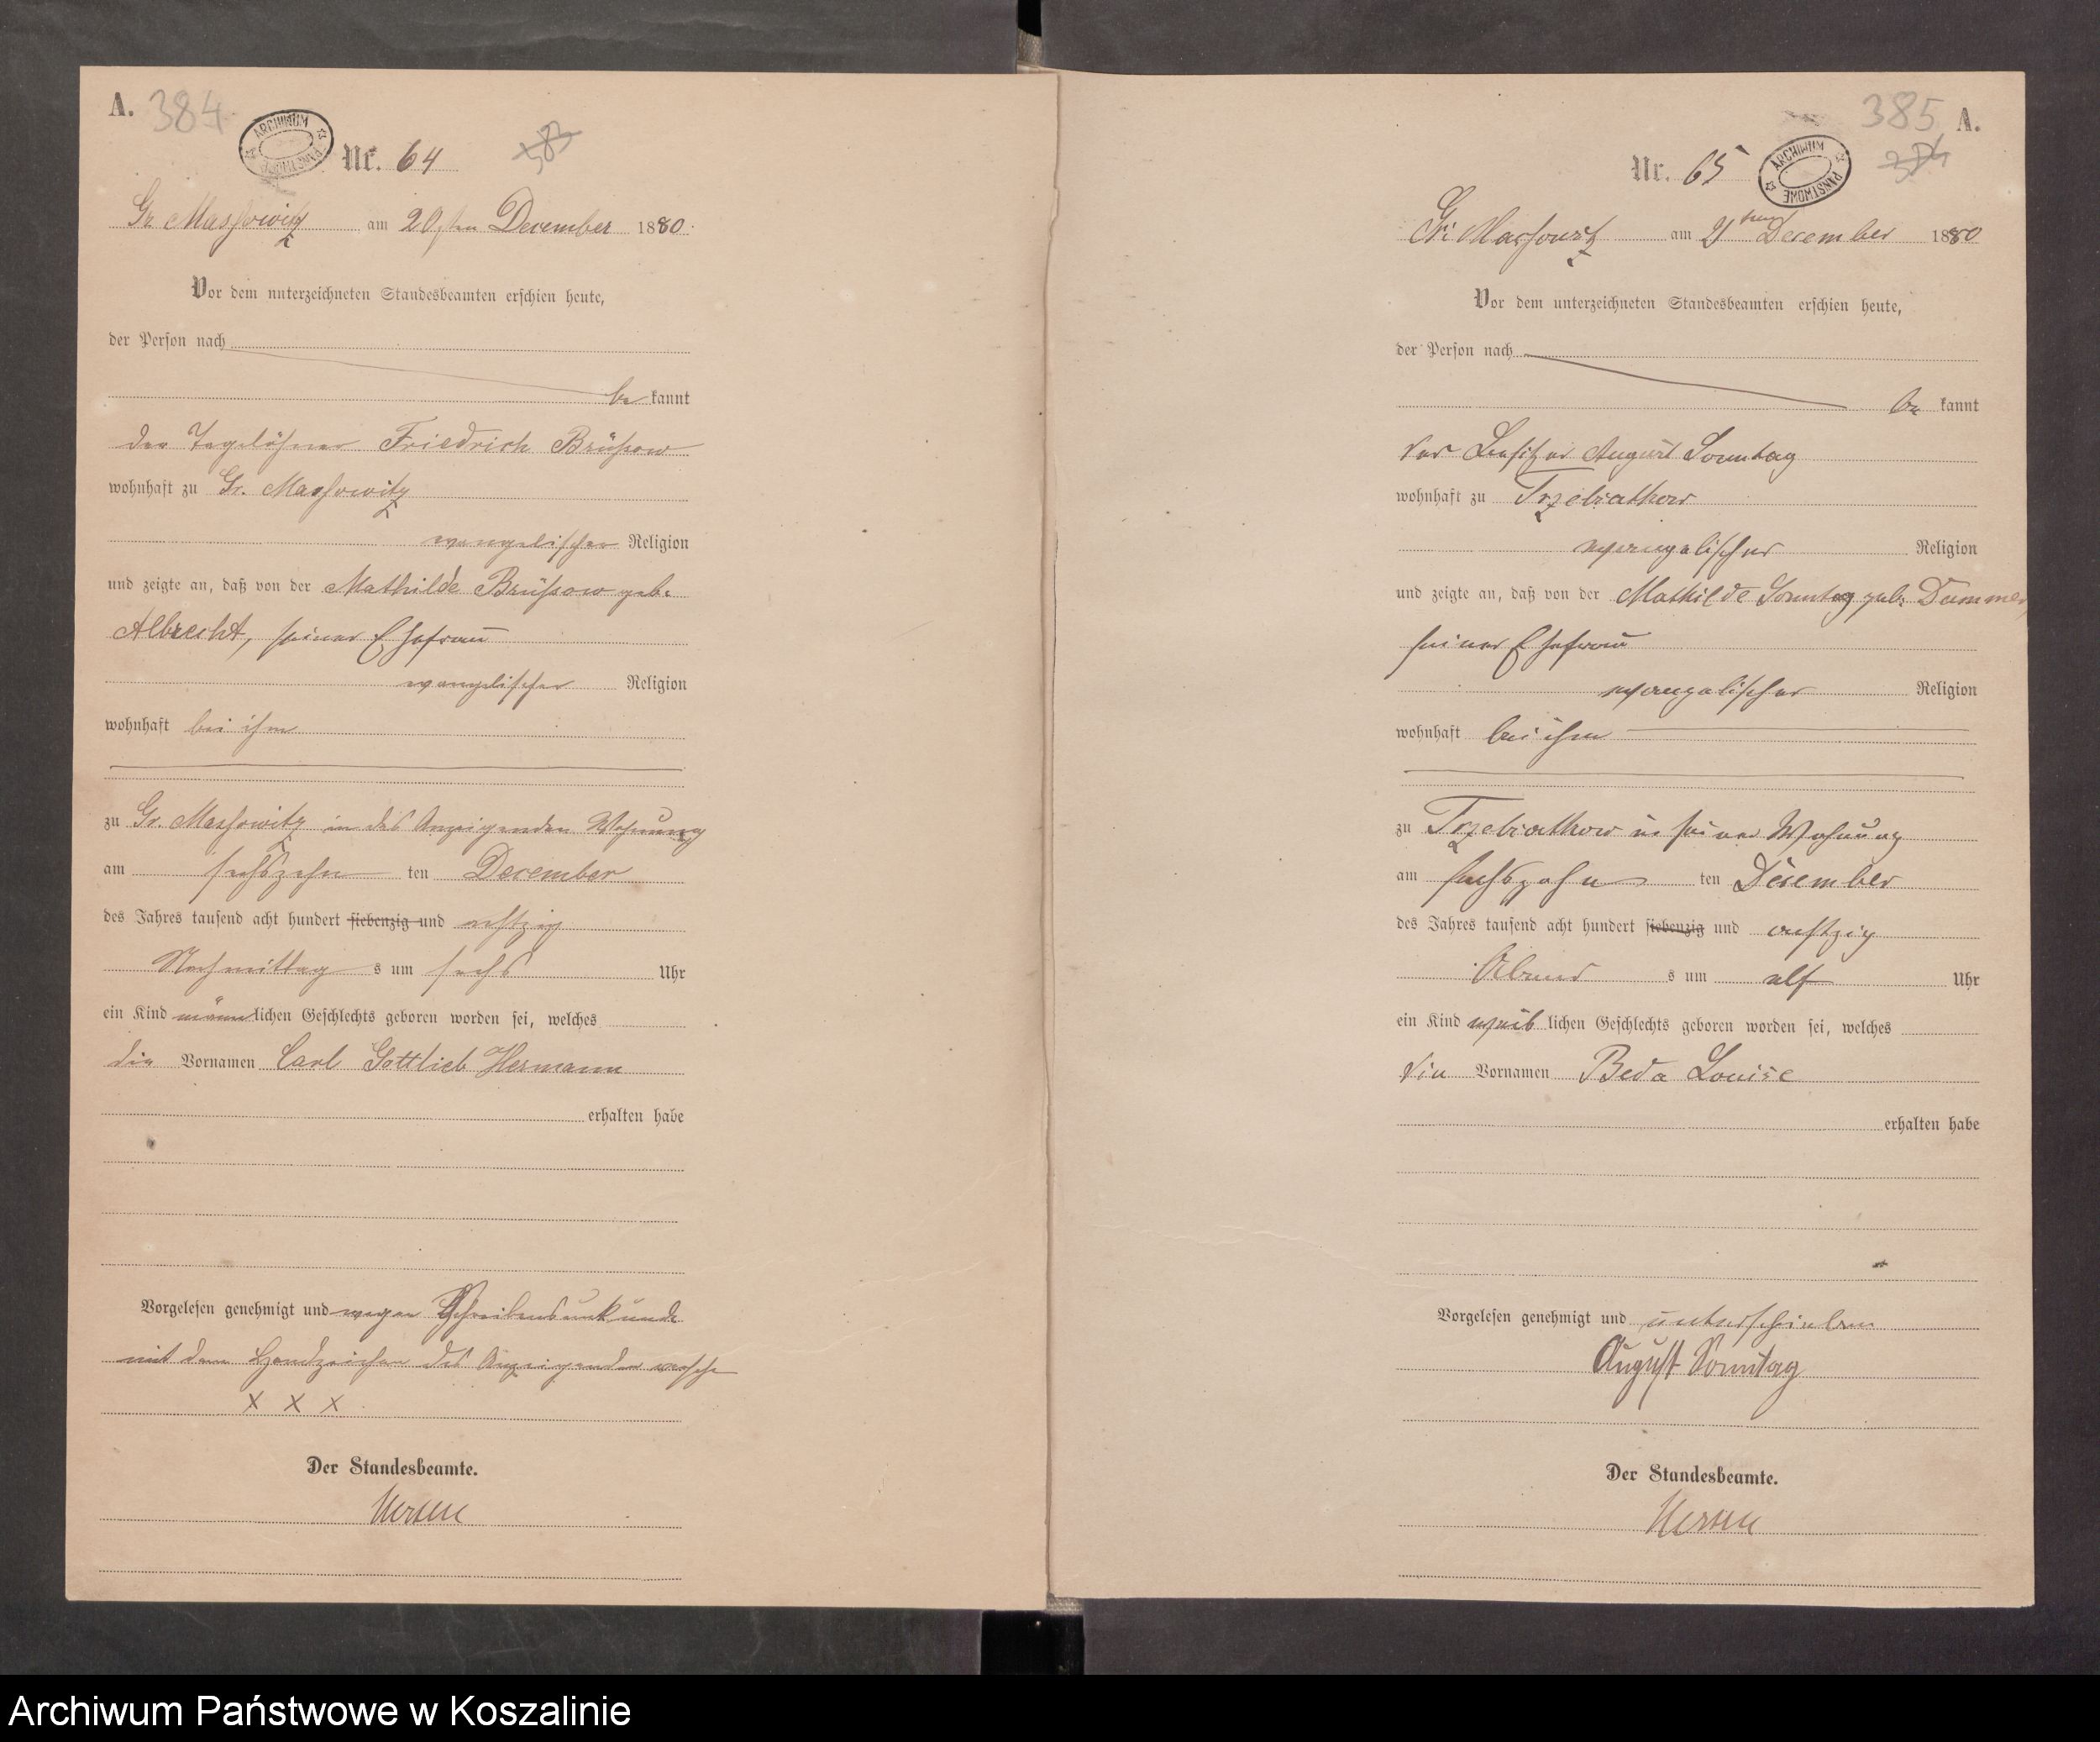 A. 384
ARCHIWUM PAŃSTWOWE
Nr. 64
383
Gr. Massowitz am 20sten December 1880.
Vor dem unterzeichneten Standesbeamten erschien heute,
der Person nach
be kannt
der Tagelöhner Friedrich Brüssow
wohnhaft zu Gr. Massowitz
evangelischer Religion
und zeigte an, daß von der Mathilde Brüssow geb.
Albrecht, seiner Ehefrau
evangelischer Religion
wohnhaft bei ihm
zu Gr. Massowitz in des Anzeigenden Wohnung
am sechszehn ten December
des Jahres tausend acht hundert siebenzig und achtzig
Nachmittag s um sechs Uhr
ein Kind männ lichen Geschlechts geboren worden sei, welches
die Vornamen Carl Gottlieb Hermann
erhalten habe
Vorgelesen genehmigt und wegen Schreibensunkunde
mit dem Handzeichen des Anzeigenden versehen
X X X
Der Standesbeamte.
385 A.
Nr. 65
ARCHIWUM PAŃSTWOWE
384
Gr: Massowitz am 21ten December 1880
Vor dem unterzeichneten Standesbeamten erschien heute,
der Person nach
be kannt
der Besitzer August Sonntag
wohnhaft zu Trzebiatkow
evangelischer Religion
und zeigte an, daß von der Mathilde Sonntag geb: Dummer,
seiner Ehefrau
evangelischer Religion
wohnhaft bei ihm
zu Trzebiatkow in seiner Wohnung
am sechszehn ten December
des Jahres tausend acht hundert siebenzig und achtzig
Abend s um elf Uhr
ein Kind weib lichen Geschlechts geboren worden sei, welches
die Vornamen Beda Louise
erhalten habe
Vorgelesen genehmigt und unterschrieben
August Sonntag
Der Standesbeamte.
Archiwum Państwowe w Koszalinie